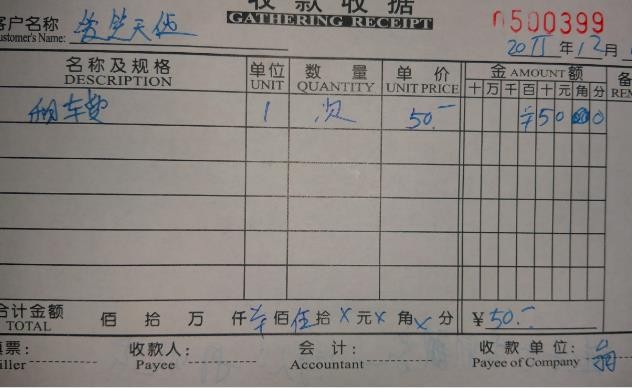 收款收据
GATHERING RECEIPT
0500399
客户名称
Customer's Name:
2011年12月
名称及规格 单位 数量 单价 金 AMOUNT 额 备
DESCRIPTION UNIT QUANTITY UNIT PRICE 十万千百十元角分 REM
租车费 1 次 50.- ¥50 00
合计金额 佰拾万仟 佰伍拾X元X角X分 ¥50.-
TOTAL
填票: 收款人: 会计: 收款单位:
Filler Payee Accountant Payee of Company